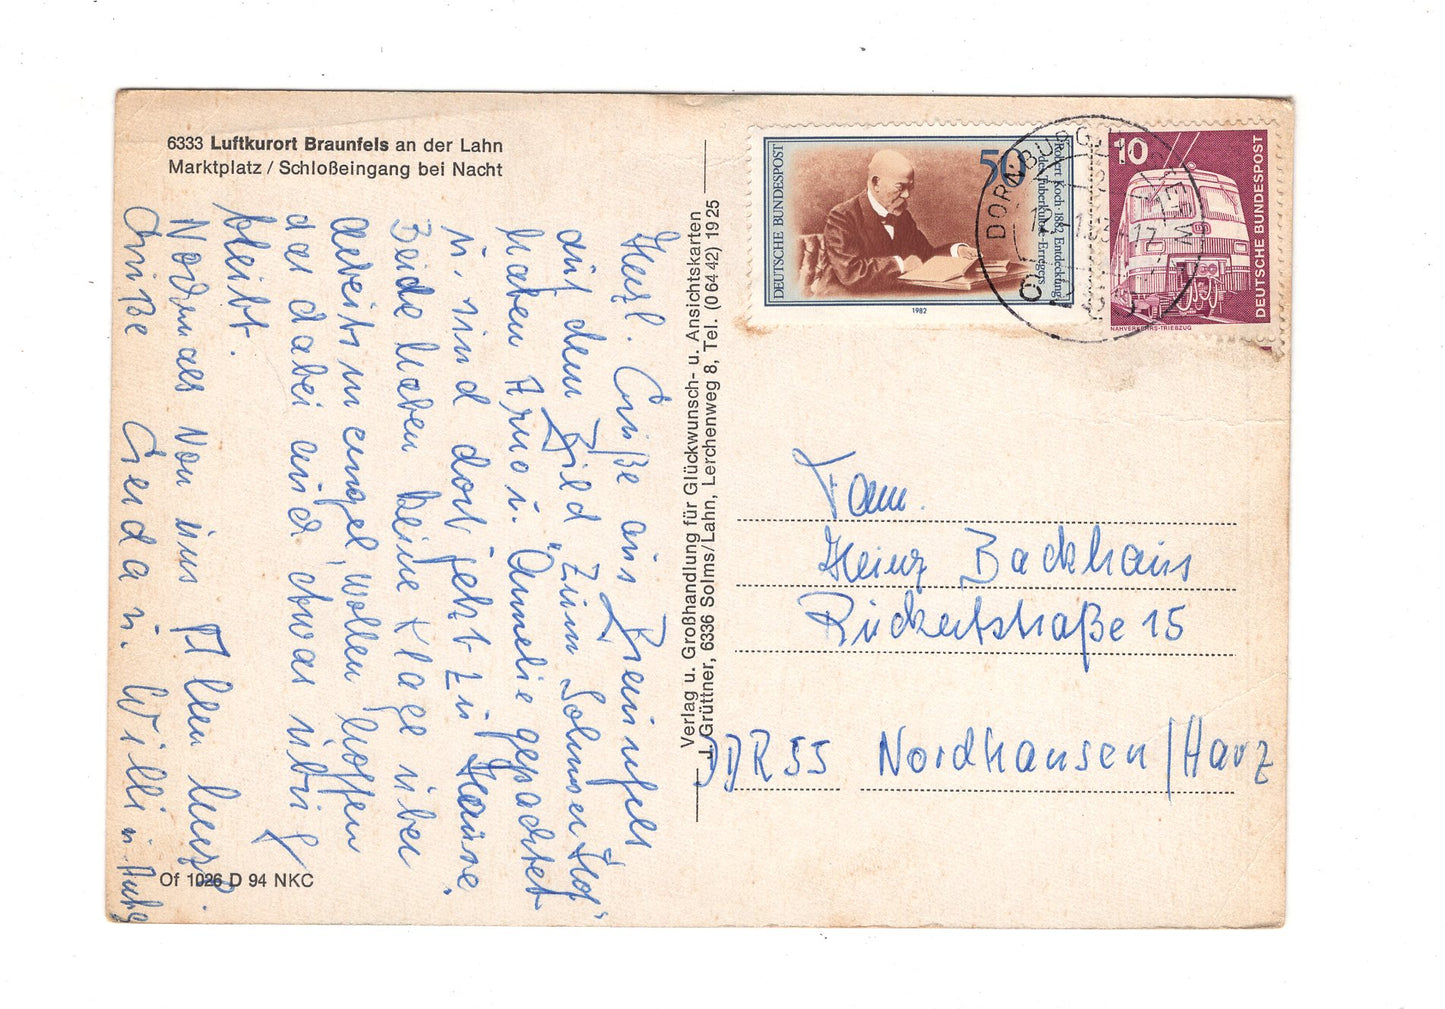 6333 Luftkurort Braunfels an der Lahn
Marktplatz / Schloßeingang bei Nacht
Herzl. Grüße aus Braunfels
auf dem Bild "Zum Solmser Hof"
haben Arno u. Annelie gepachtet
u. sind dort jetzt zu Hause.
Beide haben keine Klage über
Arbeitsmangel, wollen hoffen
das dabei auch etwas übrig
bleibt.
Nochmals von uns Allen herzl.
Grüße Gerda u. Willi u.
Of 1026 D 94 NKC
Verlag u. Großhandlung für Glückwunsch- u. Ansichtskarten
J. Grüttner, 6336 Solms/Lahn, Lerchenweg 8, Tel. (0 64 42) 19 25
DEUTSCHE BUNDESPOST
50
Robert Koch · 1882 Entdeckung
des Tuberkulose-Erregers
1982
10
DEUTSCHE BUNDESPOST
NAHVERKEHRS-TRIEBZUG
DORNBURG
Fam.
Heinz Backhaus
Rückertstraße 15
DDR 55 Nordhausen/Harz